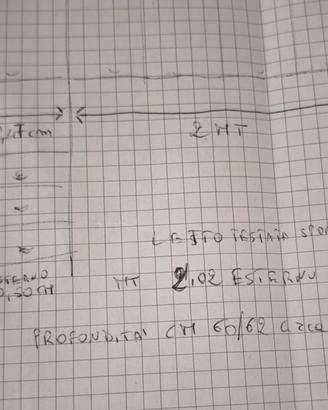 cm 2 MT
LETTO TESTATA
MT 2,02 ESTERNO
PROFONDITA' CM 60/62 circa